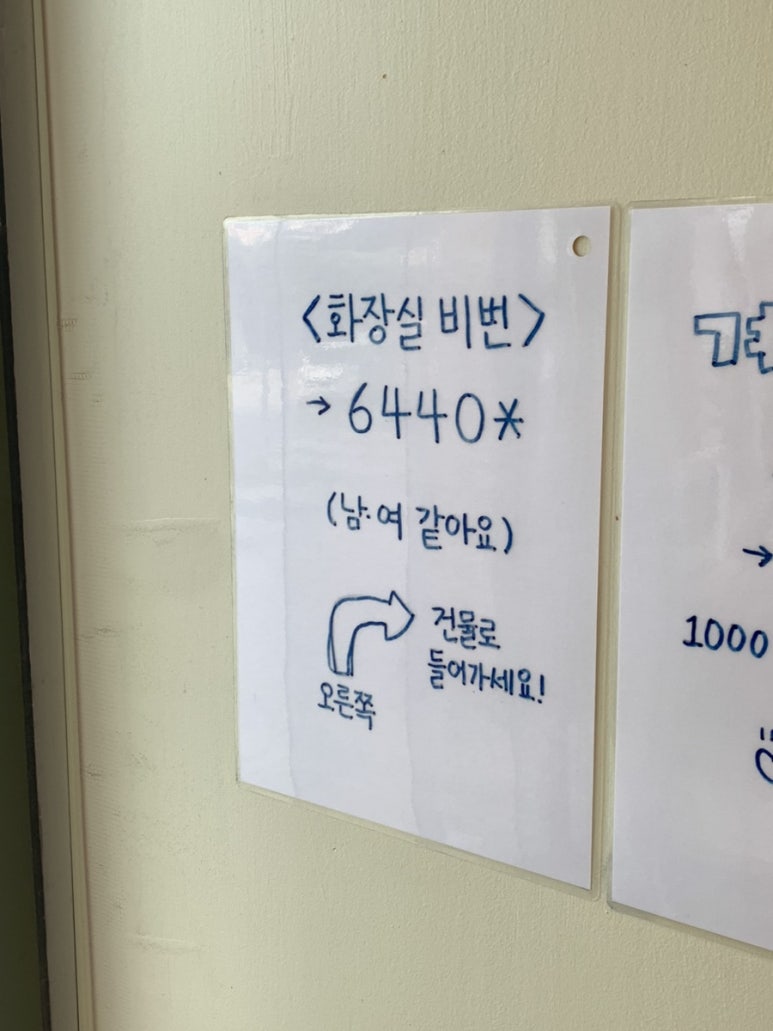 <화장실 비번>
→ 6440*
(남·여 같아요)
건물로
들어가세요!
오른쪽
→
1000